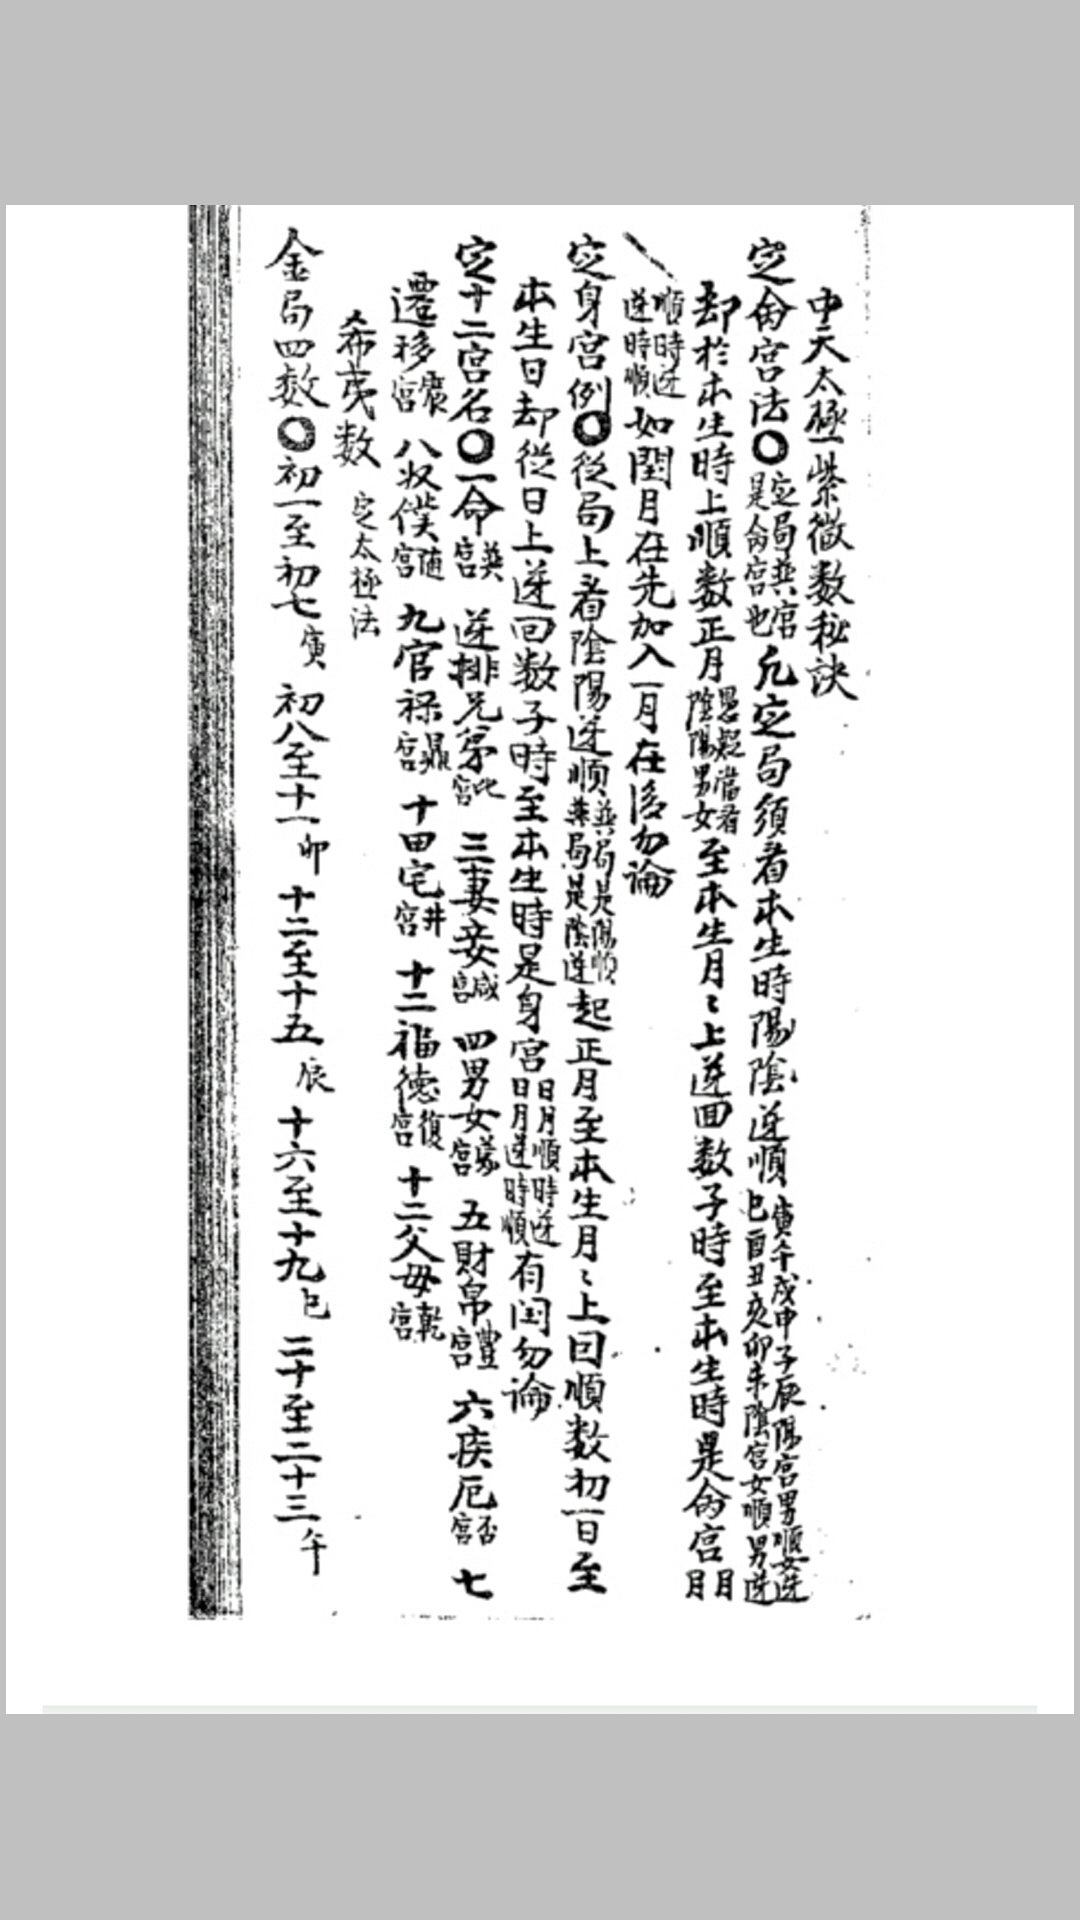 中天太極紫微数秘訣
定命宮法〇定局無官是命宮也凡定局須看本生時陽陰逆順寅午戌申子辰陽宮男順女逆巳酉丑亥卯未陰宮女順男逆
却於本生時上順数正月愚疑當看陰陽男女至本生月〻上逆回数子時至本生時是命宮月月
順時逆逆時順如閏月在先加入一月在後勿論
定身宮例〇從局上看陰陽逆順其局是陽順其局是陰逆起正月至本生月〻上回順数初一日至
本生日却從日上逆回数子時至本生時是身宮日月順時逆日月逆時順有闰勿論
定十二宮名〇一命宮 逆排兄弟比宮 三妻妾咸宮 四男女蒙宮 五財帛豐宮 六疾厄否宮 七
遷移宮 八奴僕随宮 九官禄鼎宮 十田宅井宮 十二福德復宮 十二父母乾宮
希夷数 定太極法
金局四数〇初一至初七寅 初八至十一卯 十二至十五辰 十六至十九巳 二十至二十三午